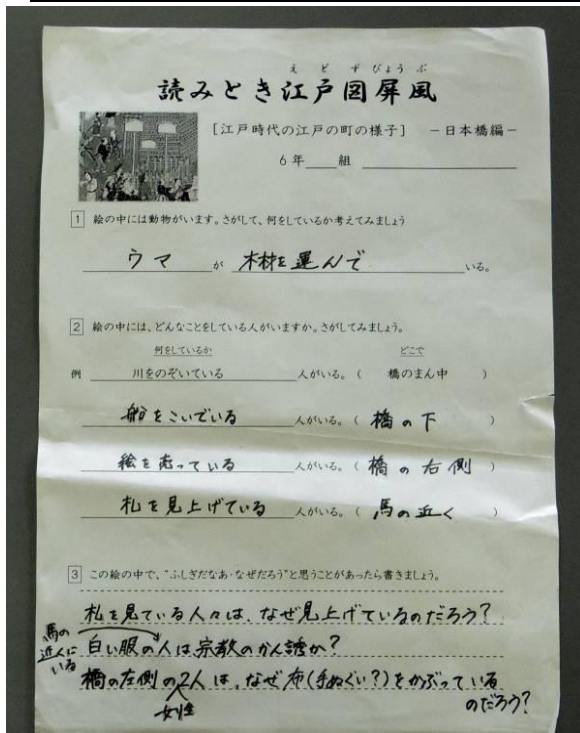 えどずびょうぶ
読みとき江戸図屏風
[江戸時代の江戸の町の様子] －日本橋編－
6年　組
1 絵の中には動物がいます。さがして、何をしているか考えてみましょう
ウマ が 木材を運んで いる。
2 絵の中には、どんなことをしている人がいますか。さがしてみましょう。
何をしているか どこで
例 川をのぞいている 人がいる。（ 橋のまん中 ）
船をこいでいる 人がいる。（ 橋の下 ）
絵を売っている 人がいる。（ 橋の右側 ）
札を見上げている 人がいる。（ 馬の近く ）
3 この絵の中で、“ふしぎだなあ・なぜだろう”と思うことがあったら書きましょう。
札を見ている人々は、なぜ見上げているのだろう?
馬の
近くに
いる
白い服の人は宗教のかん誘か?
橋の左側の2人は、なぜ布(手ぬぐい?)をかぶっている
女性
のだろう?